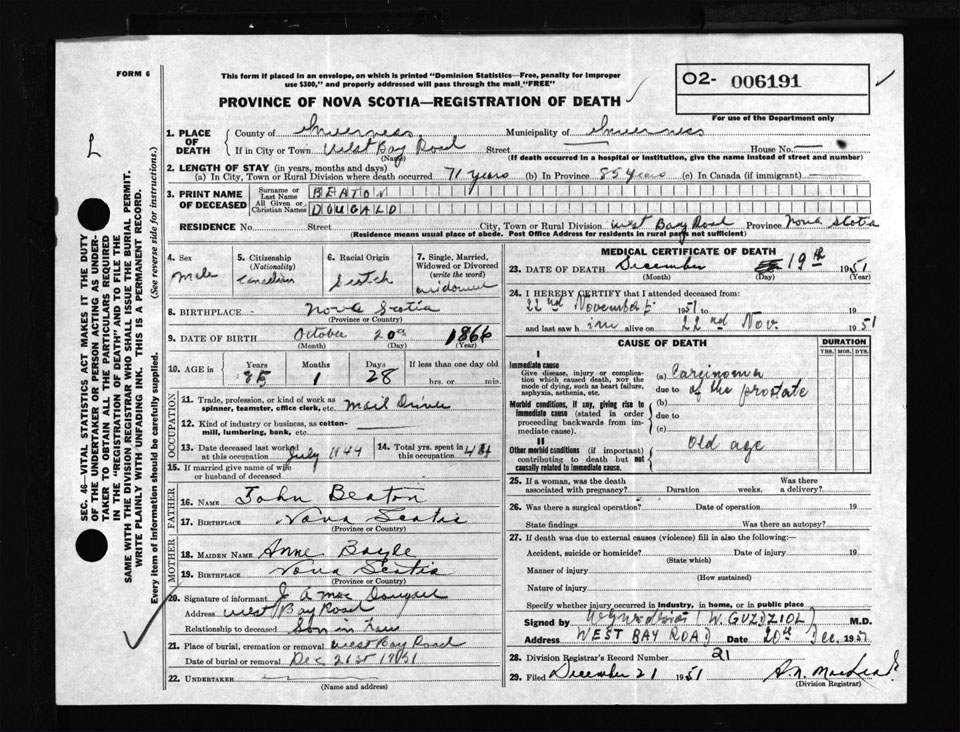 FORM 6
This form if placed in an envelope, on which is printed "Dominion Statistics—Free, penalty for improper
use $300," and properly addressed will pass through the mail "FREE"
O2- 006191
For use of the Department only
PROVINCE OF NOVA SCOTIA—REGISTRATION OF DEATH
L
SEC. 46—VITAL STATISTICS ACT MAKES IT THE DUTY
OF THE UNDERTAKER OR PERSON ACTING AS UNDER-
TAKER TO OBTAIN ALL THE PARTICULARS REQUIRED
IN THE "REGISTRATION OF DEATH" AND TO FILE THE
SAME WITH THE DIVISION REGISTRAR WHO SHALL ISSUE THE BURIAL PERMIT.
WRITE PLAINLY WITH UNFADING INK. THIS IS A PERMANENT RECORD.
Every item of information should be carefully supplied. (See reverse side for instructions.)
1. PLACE OF DEATH
County of Inverness Municipality of Inverness
If in City or Town West Bay Road Street House No.
(Name) (If death occurred in a hospital or institution, give the name instead of street and number)
2. LENGTH OF STAY (in years, months and days)
(a) In City, Town or Rural Division where death occurred 71 years (b) In Province 85 years (c) In Canada (if immigrant)
3. PRINT NAME OF DECEASED
Surname or Last Name BEATON
All Given or Christian Names DOUGALD
RESIDENCE No. Street City, Town or Rural Division West Bay Road Province Nova Scotia
(Residence means usual place of abode. Post Office Address for residents in rural parts not sufficient)
4. Sex
Male
5. Citizenship (Nationality)
Canadian
6. Racial Origin
Scotch
7. Single, Married, Widowed or Divorced (write the word)
widowed
8. BIRTHPLACE Nova Scotia
(Province or Country)
9. DATE OF BIRTH October 20th 1866
(Month) (Day) (Year)
10. AGE in Years Months Days If less than one day old
85 1 28 hrs. or min.
OCCUPATION
11. Trade, profession, or kind of work as
spinner, teamster, office clerk, etc. Mail Driver
12. Kind of industry or business, as cotton-
mill, lumbering, bank, etc.
13. Date deceased last worked
at this occupation July 1944
14. Total yrs. spent in
this occupation
15. If married give name of wife
or husband of deceased
FATHER
16. NAME John Beaton
17. BIRTHPLACE Nova Scotia
(Province or Country)
MOTHER
18. MAIDEN NAME Anne Boyle
19. BIRTHPLACE Nova Scotia
(Province or Country)
20. Signature of informant J A MacDougall
Address West Bay Road
Relationship to deceased Son in law
21. Place of burial, cremation or removal West Bay Road
Date of burial or removal Dec 21st 1951
22. UNDERTAKER
(Name and address)
MEDICAL CERTIFICATE OF DEATH
23. DATE OF DEATH December 19th 1951
(Month) (Day) (Year)
24. I HEREBY CERTIFY that I attended deceased from:
22nd November 1951 to 19
and last saw him alive on 22nd Nov. 1951
CAUSE OF DEATH DURATION
YRS. MOS. DYS.
I
Immediate cause
Give disease, injury or complica-
tion which caused death, NOT the
mode of dying, such as heart failure,
asphyxia, asthenia, etc.
(a) Carcinoma
due to of the prostate
Morbid conditions, if any, giving rise to
immediate cause (stated in order
proceeding backwards from im-
mediate cause).
(b)
due to
(c)
II
Other morbid conditions (if important)
contributing to death but not
causally related to immediate cause.
Old age
25. If a woman, was the death
associated with pregnancy? Duration weeks. Was there
a delivery?
26. Was there a surgical operation? Date of operation 19
State findings Was there an autopsy?
27. If death was due to external causes (violence) fill in also the following:—
Accident, suicide or homicide? Date of injury 19
(State which)
Manner of injury
(How sustained)
Nature of injury
Specify whether injury occurred in industry, in home, or in public place
Signed by (W. GUZDZIOL) M.D.
Address WEST BAY ROAD Date 20th Dec. 1951
28. Division Registrar's Record Number 21
29. Filed December 21 1951 A.N. MacLeod
(Division Registrar)